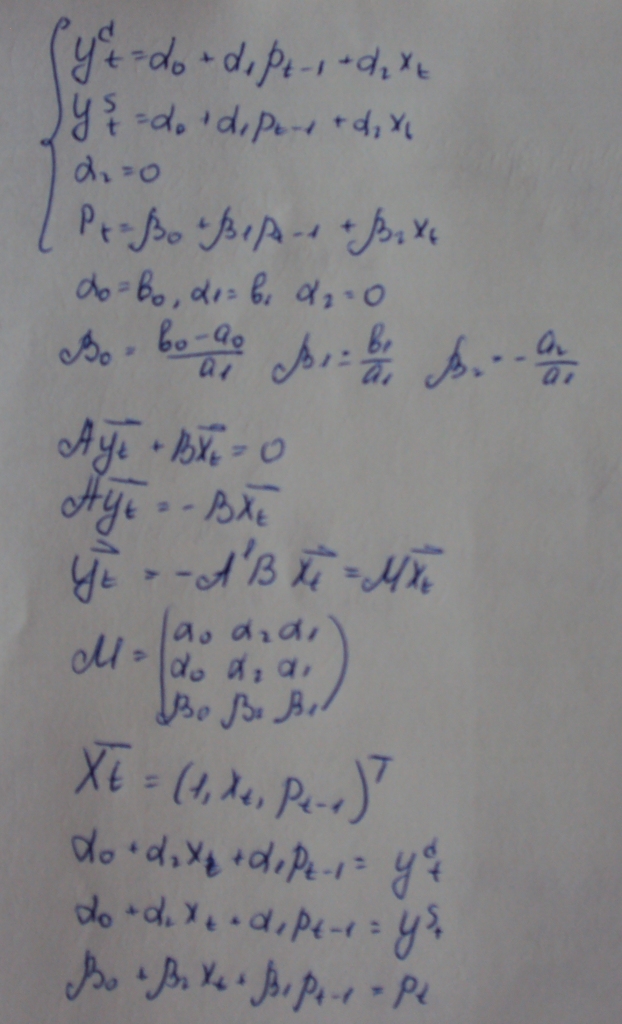 y_t^d = α₀ + α₁p_{t-1} + α₂x_t
y_t^s = α₀ + α₁p_{t-1} + α₂x_t
α₂ = 0
p_t = β₀ + β₁p_{t-1} + β₂x_t
α₀ = b₀, α₁ = b₁ α₂ = 0
β₀ = (b₀ - a₀)/a₁ β₁ = b₁/a₁ β₂ = - a₂/a₁
Ay⃗_t + Bx⃗_t = 0
Ay⃗_t = - Bx⃗_t
y⃗_t = -A⁻¹B x⃗_t = Mx⃗_t
M = (α₀ α₂ α₁
α₀ α₂ α₁
β₀ β₂ β₁)
X⃗_t = (1, x_t, p_{t-1})^T
α₀ + α₂x_t + α₁p_{t-1} = y_t^d
α₀ + α₂x_t + α₁p_{t-1} = y_t^s
β₀ + β₂x_t + β₁p_{t-1} = p_t